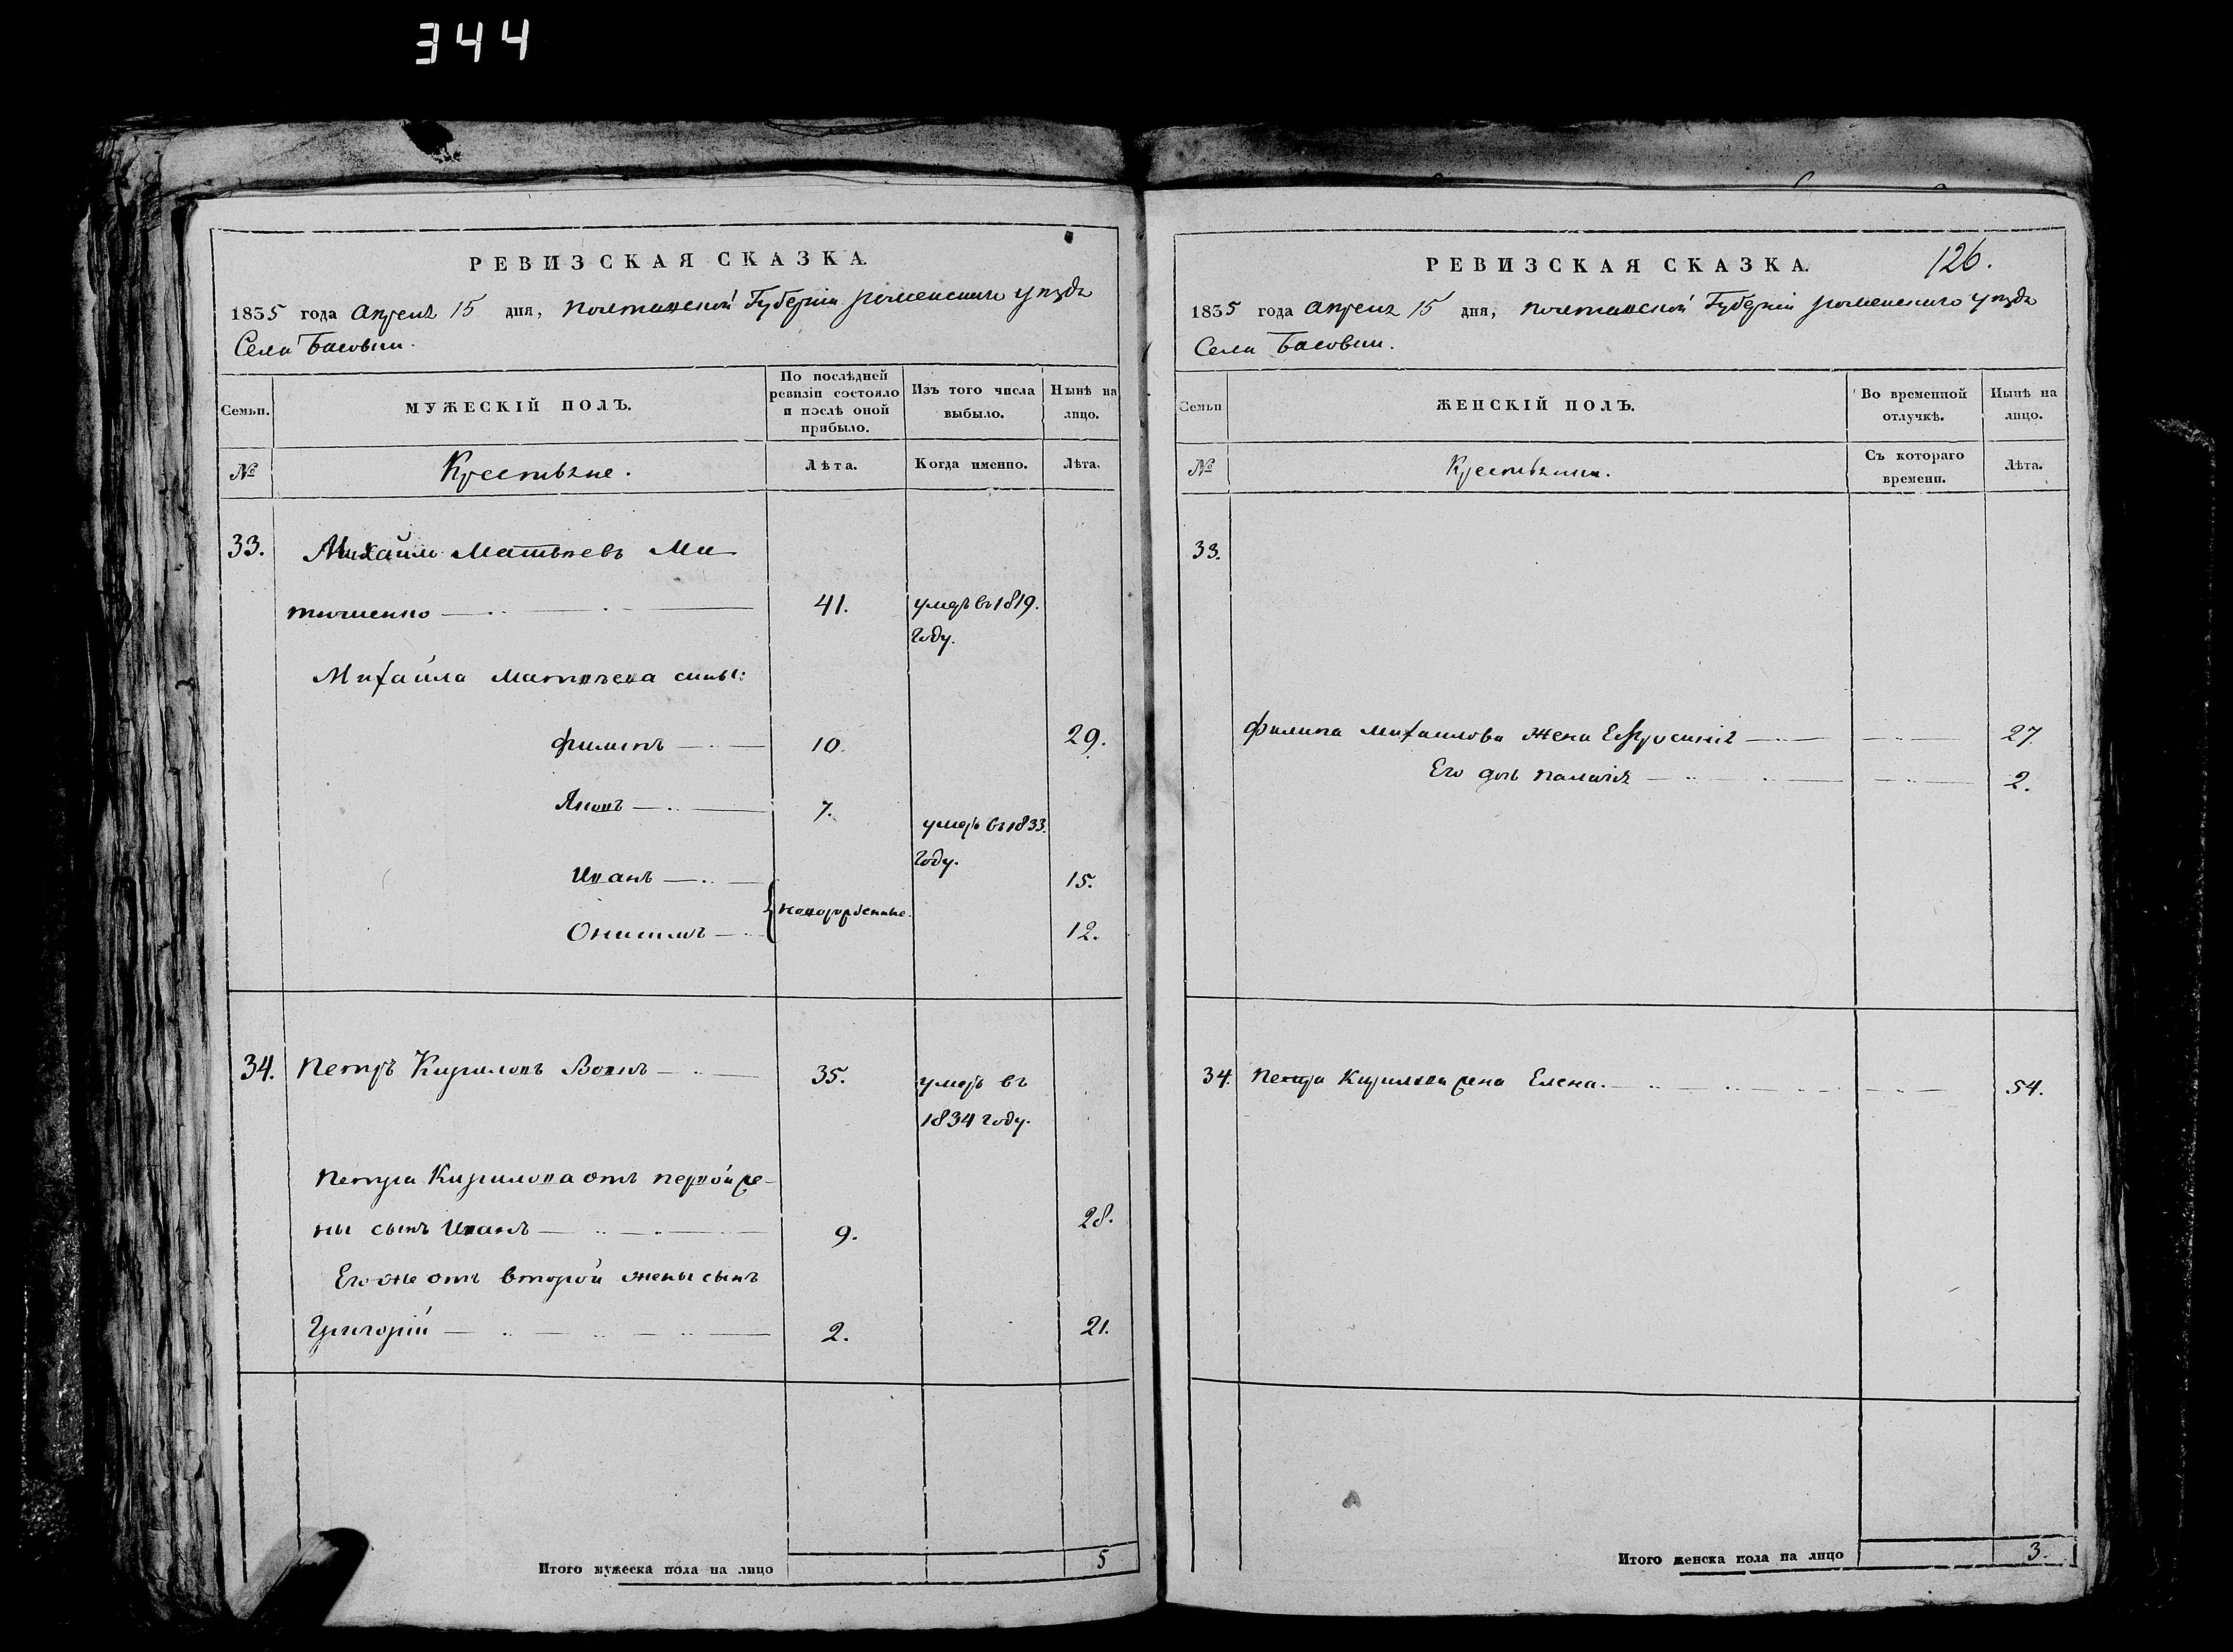 344
РЕВИЗСКАЯ СКАЗКА.
1835 года Апреля 15 дня, Полтавской Губерніи роменского уезда
Села Басовки.
Семьи. МУЖЕСКІЙ ПОЛЪ. По послѣдней ревизіи состояло и послѣ оной прибыло. Изъ того числа выбыло. Нынѣ на лицо.
№ Крестьяне. Лѣта. Когда именно. Лѣта.
33. Михайло Матвѣевъ Ма
тюшенко 41. умеръ въ 1819.
году.
Михайла Матвѣева сины:
Филипъ 10. 29.
Яковъ 7. умеръ въ 1833.
году.
Иванъ 15.
новорожденные.
Онисимъ 12.
34. Петръ Кириловъ Вовкъ 35. умеръ въ
1834 году.
Петра Кирилова отъ первой же-
ны сынъ Иванъ 9. 28.
Его же отъ второй жены сынъ
Григорій 2. 21.
Итого мужеска пола на лицо 5
РЕВИЗСКАЯ СКАЗКА. 126.
1835 года Апреля 15 дня, Полтавской Губерніи роменского уезда
Села Басовки.
Семьи ЖЕНСКІЙ ПОЛЪ. Во временной отлучкѣ. Нынѣ на лицо.
№ Крестьянки. Съ котораго времени. Лѣта.
33.
Филипа Михайлова жена Ефросинія 27.
Его дочь Палагія 2.
34. Петра Кирилова жена Елена. 54.
Итого женска пола на лицо 3.